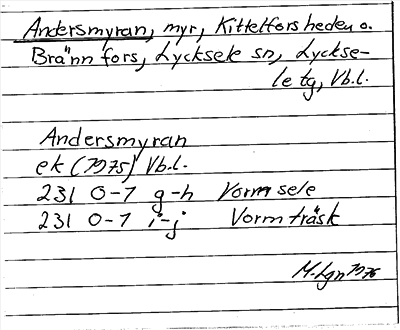 Andersmyran, myr, Kittelforsheden o.
Brännfors, Lycksele sn, Lyckse-
le tg, Vb.l.
Andersmyran
ek (1975) Vb.l.
231 0-1 g-h Vormsele
231 0-1 i-j Vormträsk
M-lgn 1976